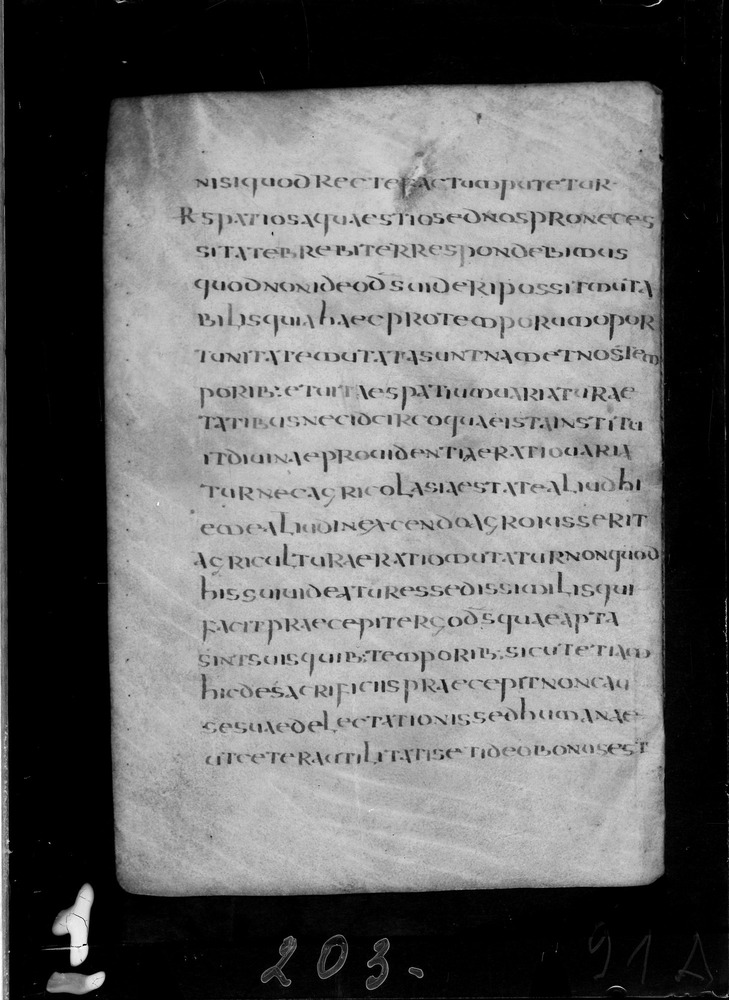 NISIQUODRECTEFACTUMPUTETUR
RSPATIOSAQUAESTIOSEDNOSPRONECES
SITATEBREBITERRESPONDEBIMUS
QUODNONIDEODSUIDERIPOSSITMUTA
BILISQUIAHAECPROTEMPORUMOPOR
TUNITATEMUTATASUNTNAMETNOSTEM
PORIB·ETUITAESPATIUMUARIATURAE
TATIBUSNECIDCIRCOQUAEISTAINSTITU
ITDIUINAEPROUIDENTIAERATIOUARIA
TURNECAGRICOLASIAESTATEALIUDHI
EMEALIUDINEXCENDOAGROIUSSERIT
AGRICULTURAERATIOMUTATURNONQUOD
HISSUIUIDEATURESSEDISSIMILISQUI
FACITPRAECEPITERGODSQUAEAPTA
SINTSUISQUIB·TEMPORIB·SICUTETIAM
HICDESACRIFICIISPRAECEPITNONCAU
SESUAEDELECTATIONISSEDHUMANAE
UTCETERAUTILITATISETIDEOBONUSEST
203.
91A